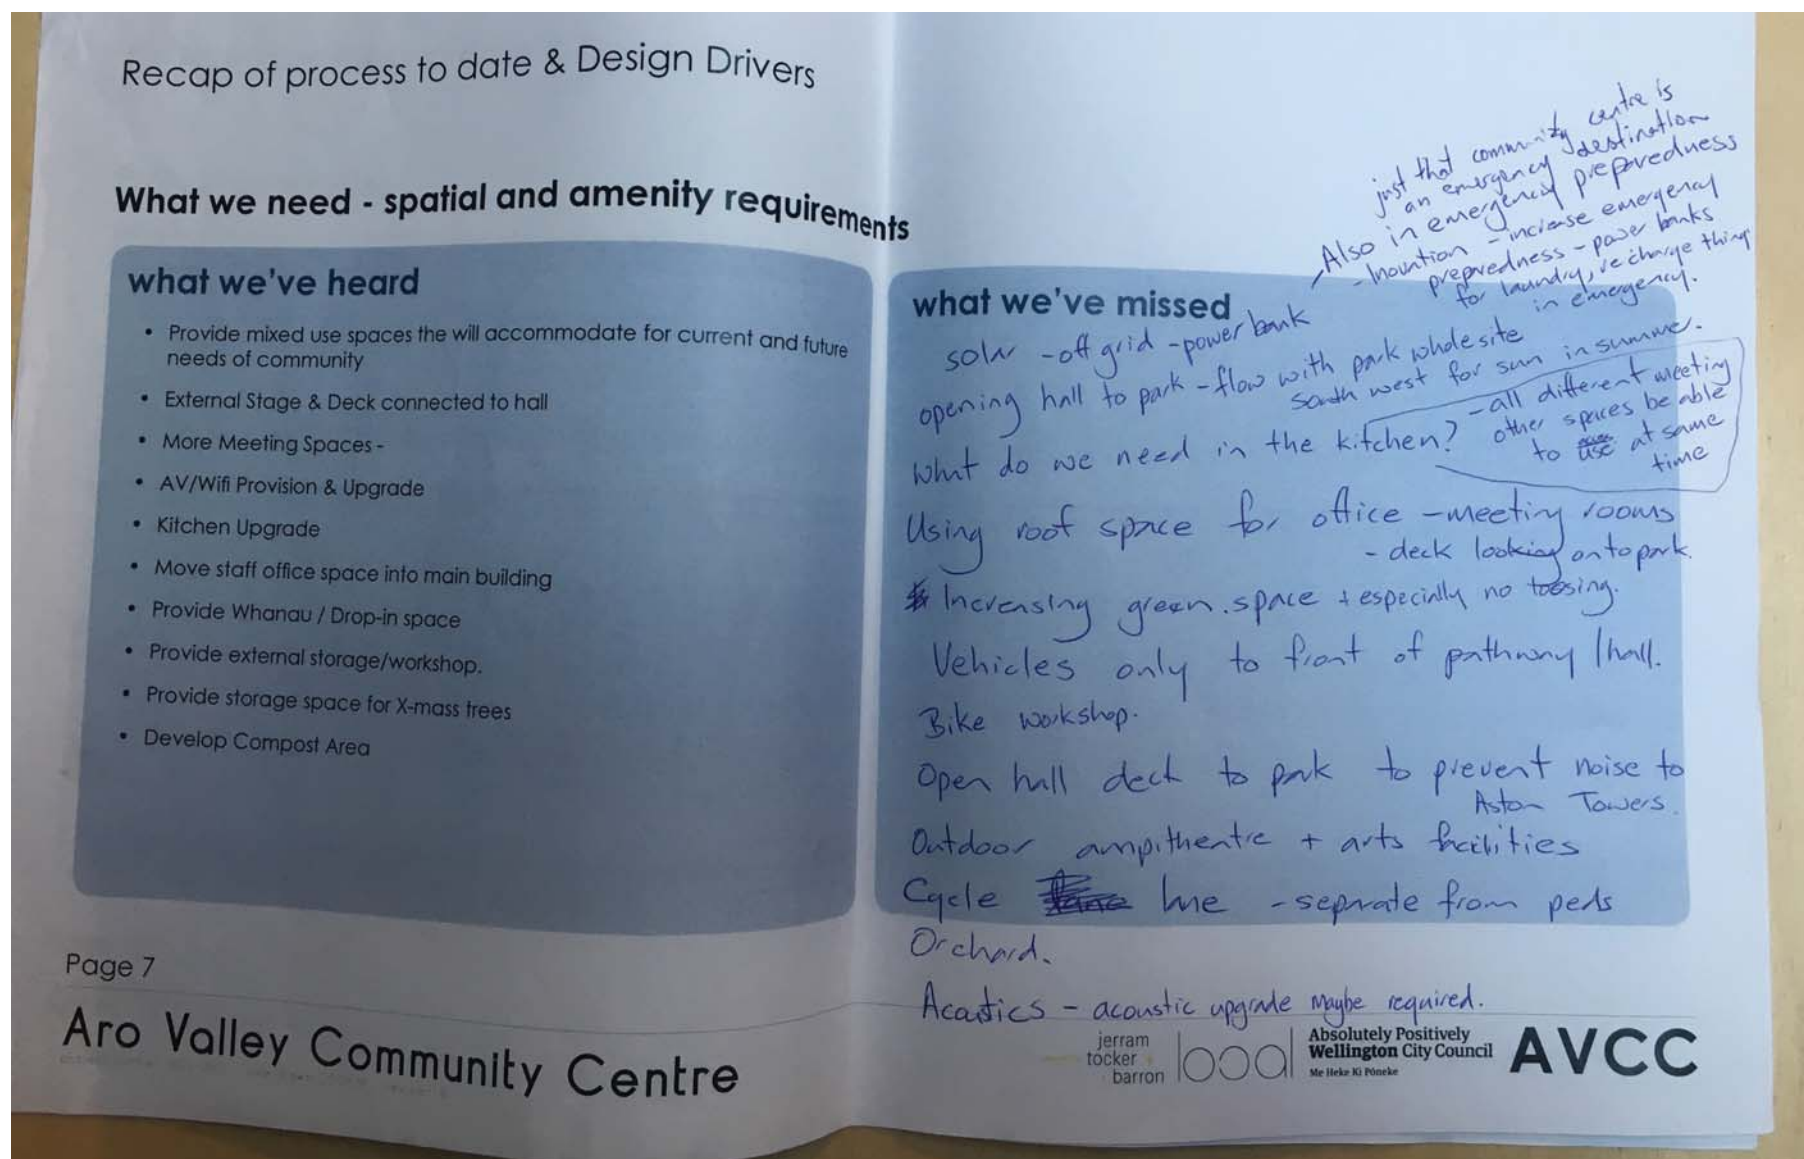 Recap of process to date & Design Drivers
What we need - spatial and amenity requirements
what we've heard
• Provide mixed use spaces the will accommodate for current and future
needs of community
• External Stage & Deck connected to hall
• More Meeting Spaces -
• AV/Wifi Provision & Upgrade
• Kitchen Upgrade
• Move staff office space into main building
• Provide Whanau / Drop-in space
• Provide external storage/workshop.
• Provide storage space for X-mass trees
• Develop Compost Area
just that community centre is
an emergency destination
Also in emergency preparedness
- Inovation - increase emergency
prepredness - power banks
for laundry, recharge things
in emergency.
what we've missed
solar - off grid - power bank
opening hall to park - flow with park whole site
South west for sun in summer.
What do we need in the kitchen?
- all different meeting
other spaces be able
to use at same
time
Using roof space for office - meeting rooms
- deck looking onto park.
* Increasing green space + especially no
Vehicles only to front of pathway / hall.
Bike workshop.
Open hall deck to park to prevent noise to
Aston Towers.
Outdoor ampitheatre + arts facilities
Cycle lane - seprate from peds
Orchard.
Acoustics - acoustic upgrade maybe required.
Page 7
Aro Valley Community Centre
jerram
tocker
barron
boa
Absolutely Positively
Wellington City Council
Me Heke Ki Pōneke
AVCC